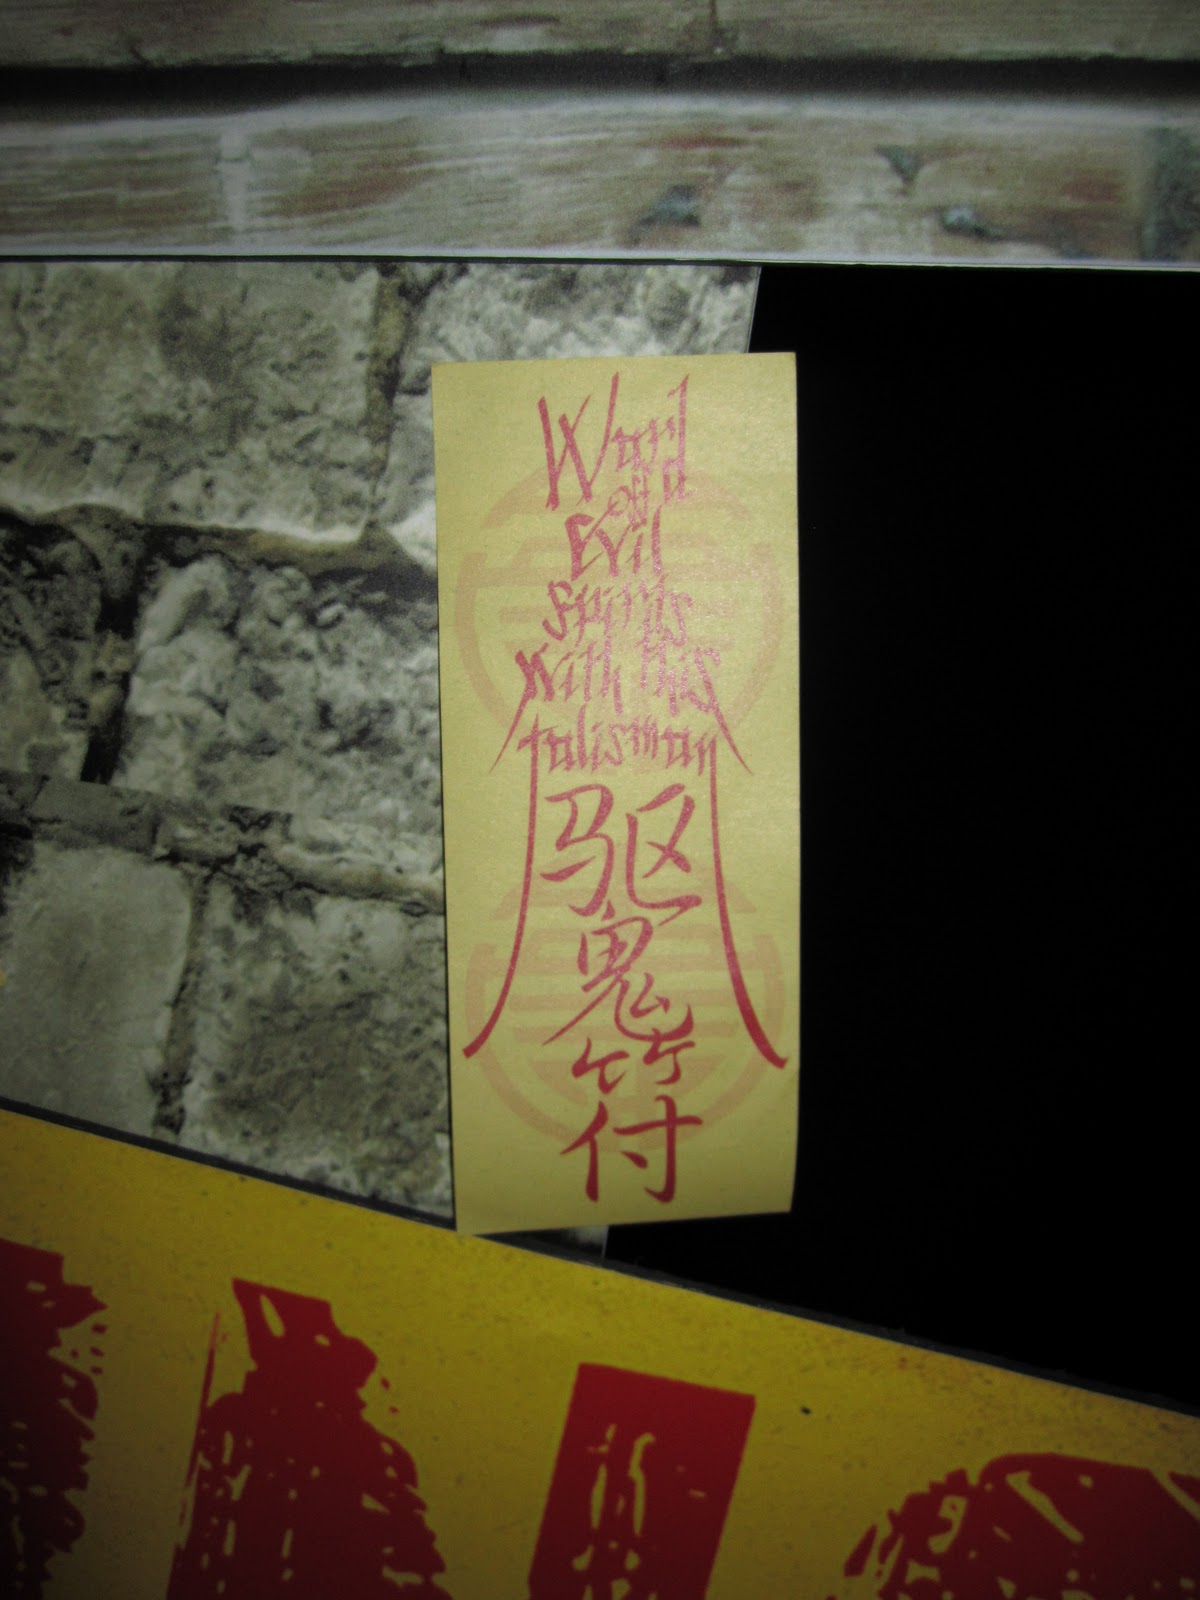 Ward
off
Evil
spirits
with this
talisman
驱
鬼
符